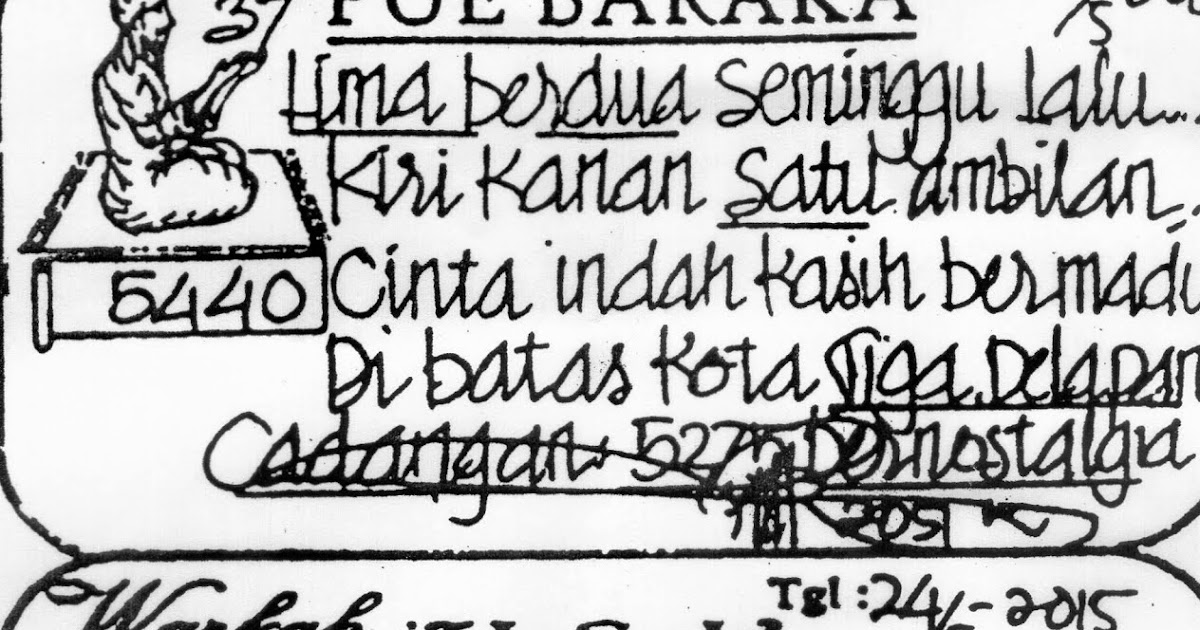 POE BARAKA
Lima berdua seminggu lalu...
Kiri Kanan satu ambilan
5440
Cinta indah Kasih bermadu
Di batas Kota Tiga Delapan
Cadangan 5275 Bernostalgia
2051
Tgl : 24/ - 2015